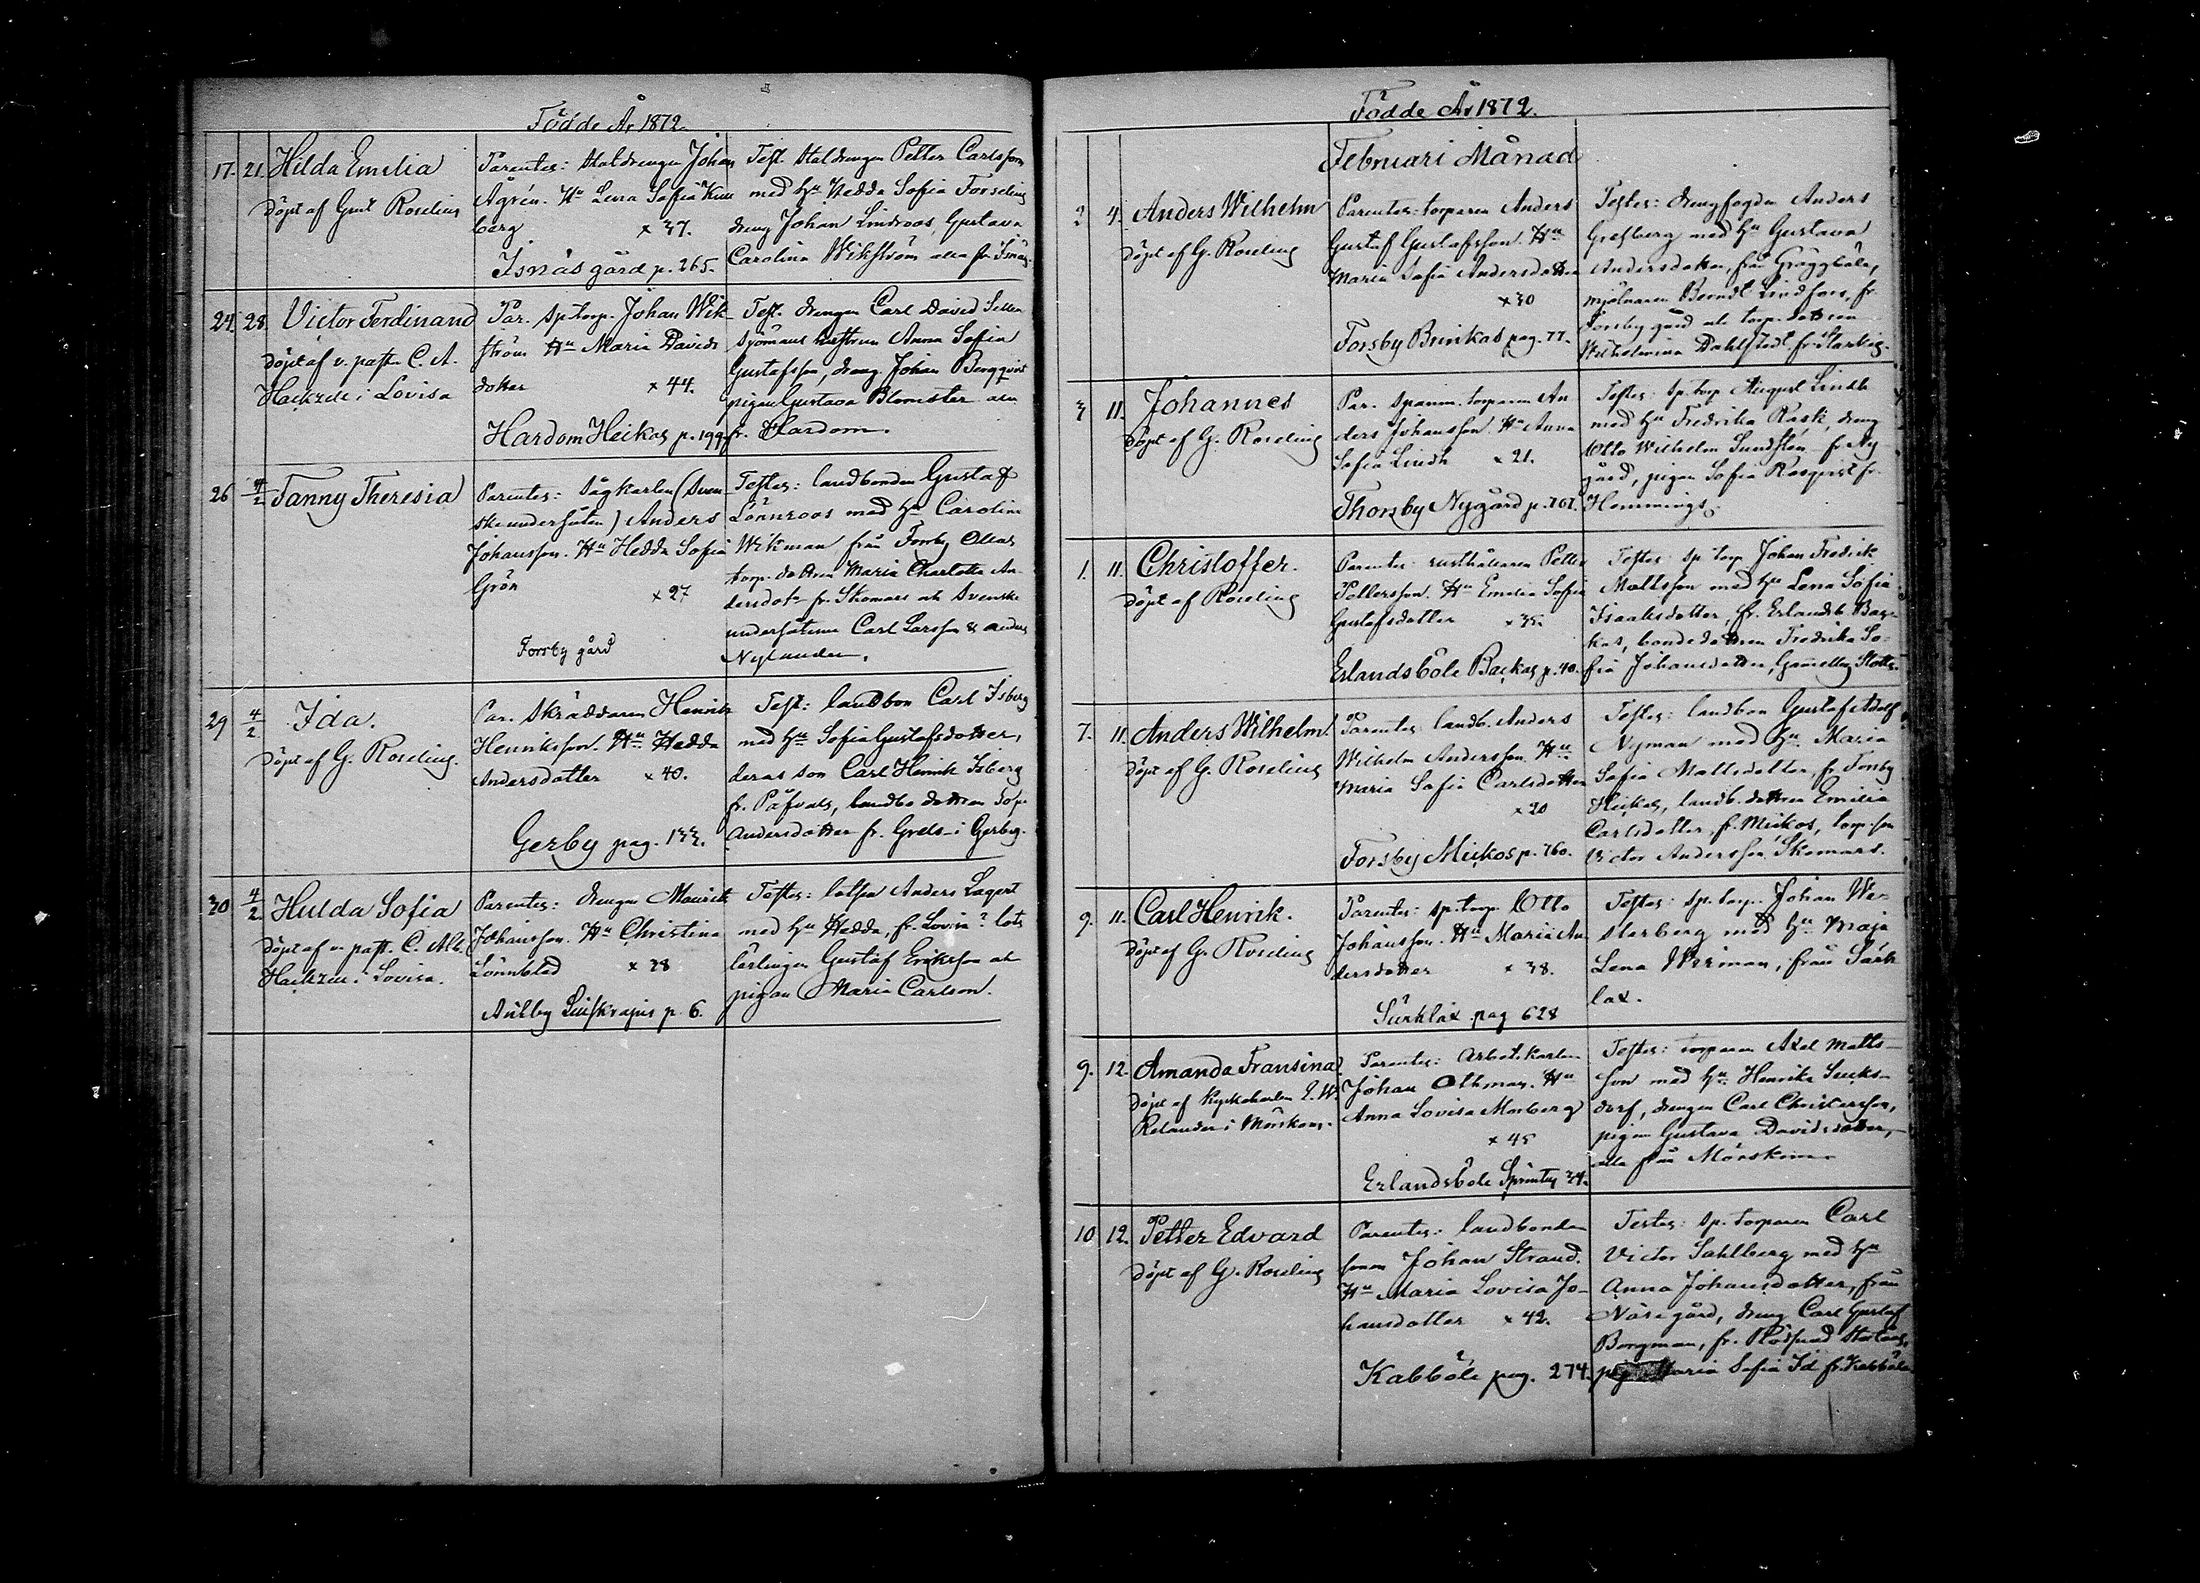 Födde År 1872.
17. 21. Hilda Emelia
Döpt af Gust Roseling
Parentes: Staldrengen Johan
Ågrén. Hu Lena Sofia
berg x 37.
Isnäs gård p. 265.
Test. Staldrengen Petter Carlsson
med hu Hedda Sofia Forseling
dreng Johan Lindroos, Gustava
Carolina Wikström alla fr Isnäs
24. 28. Victor Ferdinand
Döpt af v. past. C. A.
i Lovisa
Par. sp. torp. Johan Wik-
ström Hu Maria Davids
dotter x 44.
Hardom Heikas p. 199.
Test. drengen Carl David
sjömans hustrun Anna Sofia
Gustafsson, dreng. Johan Bergqvist
pigan Gustava Blomster alla
fr. Hardom.
26 4/2 Fanny Theresia
Parentes: Sågkarlen (Sven-
ske undersåten) Anders
Johansson. Hu Hedda Sofia
Grön x 27
Forsby gård
Testes: landbonden Gustaf
Lönnroos med hu Carolina
Wikman från Forsby Ollas
torp. dottren Maria Charlotta An-
dersdotr fr. Skomars ok Svenske
undersåterne Carl Larsson & Anders
Nylander.
29 4/2 Ida.
Döpt af G. Roseling.
Par. Skräddaren Henrik
Henriksson. Hu Hedda
Andersdotter x 40.
Gerby pag. 133.
Test: landbon Carl Isberg
med hu Sofia Gustafsdotter,
deras son Carl Henrik Isberg
fr. Påfvals, landbo dottren Sofia
Andersdotter fr. Grels i Gerby.
30 4/2 Hulda Sofia
Döpt af v. past. C. Alb.
i Lovisa.
Parentes: drengen Maurits
Johansson. Hu Christina
Lönnblad x 28
p. 6.
Testes: lotsen Anders Lagert
med hu Hedda, fr. Lovisa? lots
lärlingen Gustaf Erikson ok
pigan Maria Carlson.
Födde År 1872.
Februari Månad
2 4. Anders Wilhelm
Döpt af G. Roseling
Parentes: torparen Anders
Gustaf Gustafsson. Hu
Maria Sofia Andersdotter
x 30
Forsby Brinkas pag. 77.
Testes: drengfogden Anders
Grefberg med hu Gustava
Andersdotter, från Greggböle,
mjölnaren Berndt Lindfors, fr.
Forsby gård ok torp. dottren
Wilhelmina Dahlstedt fr.
3 11. Johannes
Döpt af G. Roseling
Par. spanm. torparen An
ders Johansson. Hu Anna
Sofia Lindh x 21.
Thorsby Nygård p. 761.
Testes: sp. torp August Lindh
med hu Fredrika Rask, dreng
Otto Wilhelm Sundstén fr. Ny
gård, pigan Sofia Rosqvist fr.
Hommings.
1. 11. Christoffer.
Döpt af Roseling
Parentes: rusthållaren Petter
Pettersson. Hu Emelia Sofia
Gustafsdotter x 35.
Erlandsböle Backas p. 40.
Testes: sp torp Johan Fredrik
Mattsson med hu Lena Sofia
Isaaksdotter, fr. Erlandsb. Bac-
kas, bondedottren Fredrika So-
fia Johansdotter,
7. 11. Anders Wilhelm
Döpt af G. Roseling
Parentes: landb. Anders
Wilhelm Andersson. Hu
Maria Sofia Carlsdotter
x 20
Forsby Mickos p. 760.
Testes: landbon Gustaf Adolf
Nyman med hu Maria
Sofia Mattsdotter, fr. Forsby
Heikas, landb. dottren Emilia
Carlsdotter fr. Mickos, torp. son
Victor Andersson Skomars.
9. 11. Carl Henrik.
Döpt af G. Roseling
Parentes: sp. torp. Otto
Johansson. Hu Maria An
dersdotter x 38.
Särklax pag 628
Testes: sp. torp. Johan We-
sterberg med hu Maja
Lena Wirman, från Särk
lax.
9. 12. Amanda Fransina
Döpt af Kyrkoherden
Relander i Mörskom.
Parentes: Arbetskarlen
Johan Othman. Hu
Anna Lovisa Morberg
x 45
Erlandsböle 34.
Testes: torparen Axel Matts-
son med hu. Henrika
dorf, drengen Carl Christersson,
pigan Gustava Davidsdotter,
alla från Mörskom.
10 12. Petter Edvard
Döpt af G. Roseling
Parentes: landbonde
sonen Johan Strand.
Hu Maria Lovisa Jo-
hansdotter x 42.
Kabböle pag. 274.
Testes: sp. torparen Carl
Victor Sahlberg med hu
Anna Johansdotter, från
Näsegård, dreng Carl Gustaf
Borgman, fr.
Maria Sofia Id fr. Kabböle